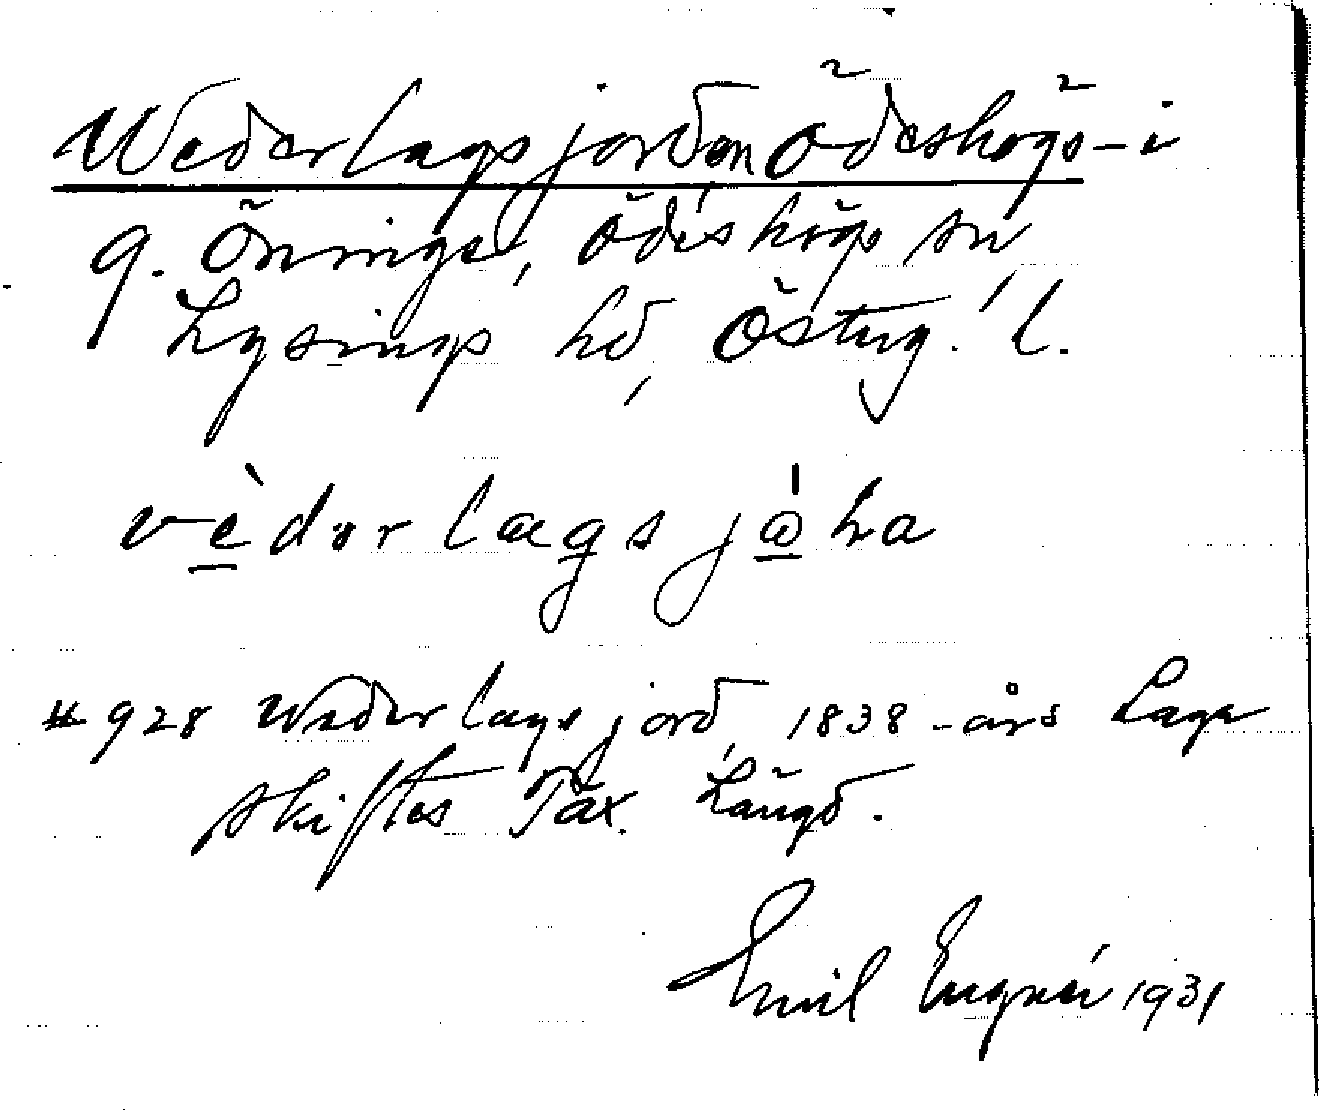 Wederlagsjorden Ödeshögs - i
g. Öninge, Ödeshögs sn
Lysings hd, Österg. l.
vèdərlagsjoha
# 928 Wederlagsjord, 1838 - års Laga
skiftes Tax. Längd.
Emil Engnér 1931